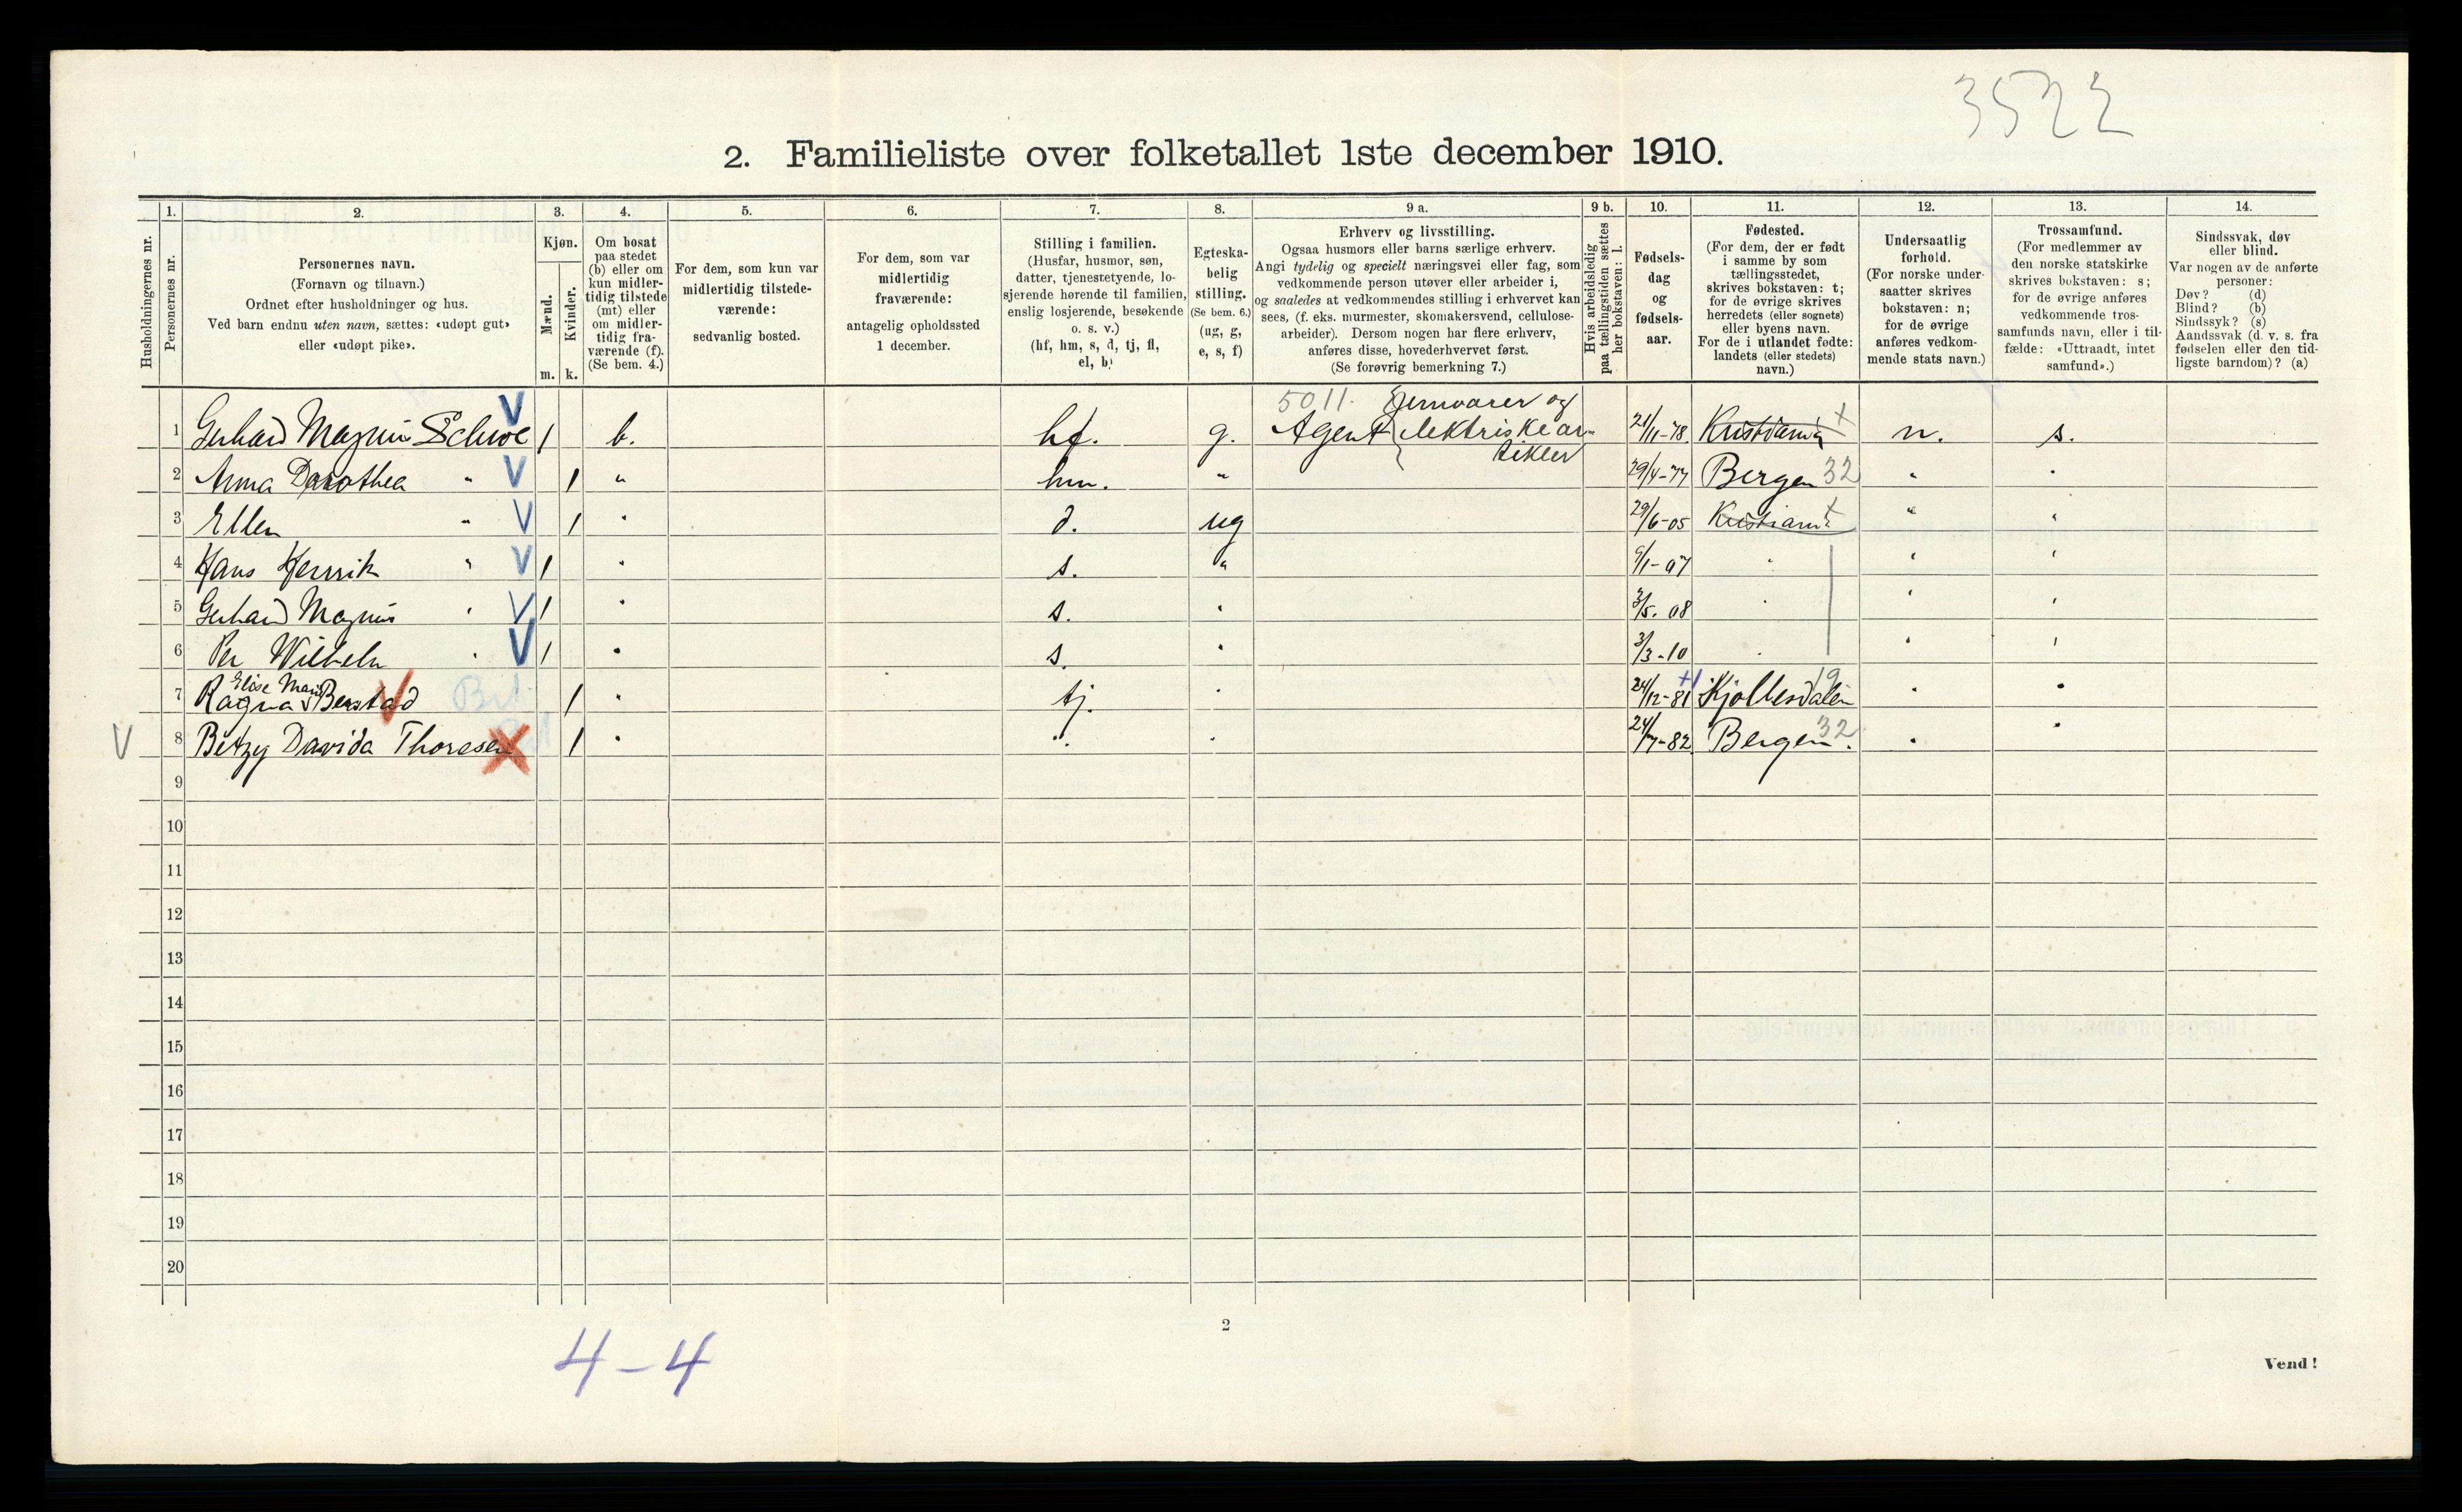 3522
2. Familieliste over folketallet 1ste december 1910.
Husholdningernes nr.
1.
Personernes nr.
2.
Personernes navn.
(Fornavn og tilnavn.)
Ordnet efter husholdninger og hus.
Ved barn endnu uten navn, sættes: «udøpt gut»
eller «udøpt pike».
3.
Kjøn.
Mænd.
Kvinder.
m. k.
4.
Om bosat
paa stedet
(b) eller om
kun midler-
tidig tilstede
(mt) eller
om midler-
tidig fra-
værende (f).
(Se bem. 4.)
5.
For dem, som kun var
midlertidig tilstede-
værende:
sedvanlig bosted.
6.
For dem, som var
midlertidig
fraværende:
antagelig opholdssted
1 december.
7.
Stilling i familien.
(Husfar, husmor, søn,
datter, tjenestetyende, lo-
sjerende hørende til familien,
enslig losjerende, besøkende
o. s. v.)
(hf, hm, s, d, tj, fl,
el, b)
8.
Egteska-
belig
stilling.
(Se bem. 6.)
(ug, g,
e, s, f)
9 a.
Erhverv og livsstilling.
Ogsaa husmors eller barns særlige erhverv.
Angi tydelig og specielt næringsvei eller fag, som
vedkommende person utøver eller arbeider i,
og saaledes at vedkommendes stilling i erhvervet kan
sees, (f. eks. murmester, skomakersvend, cellulose-
arbeider). Dersom nogen har flere erhverv,
anføres disse, hovederhvervet først.
(Se forøvrig bemerkning 7.)
9 b.
Hvis arbeidsledig
paa tællingstiden sættes
her bokstaven: l.
10.
Fødsels-
dag
og
fødsels-
aar.
11.
Fødested.
(For dem, der er født
i samme by som
tællingsstedet,
skrives bokstaven: t;
for de øvrige skrives
herredets (eller sognets)
eller byens navn.
For de i utlandet fødte:
landets (eller stedets)
navn.)
12.
Undersaatlig
forhold.
(For norske under-
saatter skrives
bokstaven: n;
for de øvrige
anføres vedkom-
mende stats navn.)
13.
Trossamfund.
(For medlemmer av
den norske statskirke
skrives bokstaven: s;
for de øvrige anføres
vedkommende tros-
samfunds navn, eller i til-
fælde: «Uttraadt, intet
samfund».)
14.
Sindssvak, døv
eller blind.
Var nogen av de anførte
personer:
Døv? (d)
Blind? (b)
Sindssyk? (s)
Aandssvak (d. v. s. fra
fødselen eller den tid-
ligste barndom)? (a)
5011. Jernvarer og
1 Gerhard Magnus V 1 b. hf. g. Agent elektriske ar- 21/11-78 Kristiania + n. s.
tikler
2 Anna Dorothea " V 1 " hm. " 29/4-77 Bergen 32 " "
3 Ellen " V 1 " d. ug 29/6-05 Kristiania + " "
4 Hans Henrik " V 1 " s. " 9/1-07 " " "
5 Gerhard Magnus " V 1 " s. " 3/5-08 " " "
6 Per Wilhelm " V 1 " s. " 3/3-10 " " "
Elise Marie
7 Ragna Berstad V 1 " tj. " 24/12-81 Kjøllesdalen 19 " "
V 8 Betzy Davida Thoresen X 1 " " " 24/7-82 Bergen. 32 " "
9
10
11
12
13
14
15
16
17
18
19
20
2
4-4
Vend!